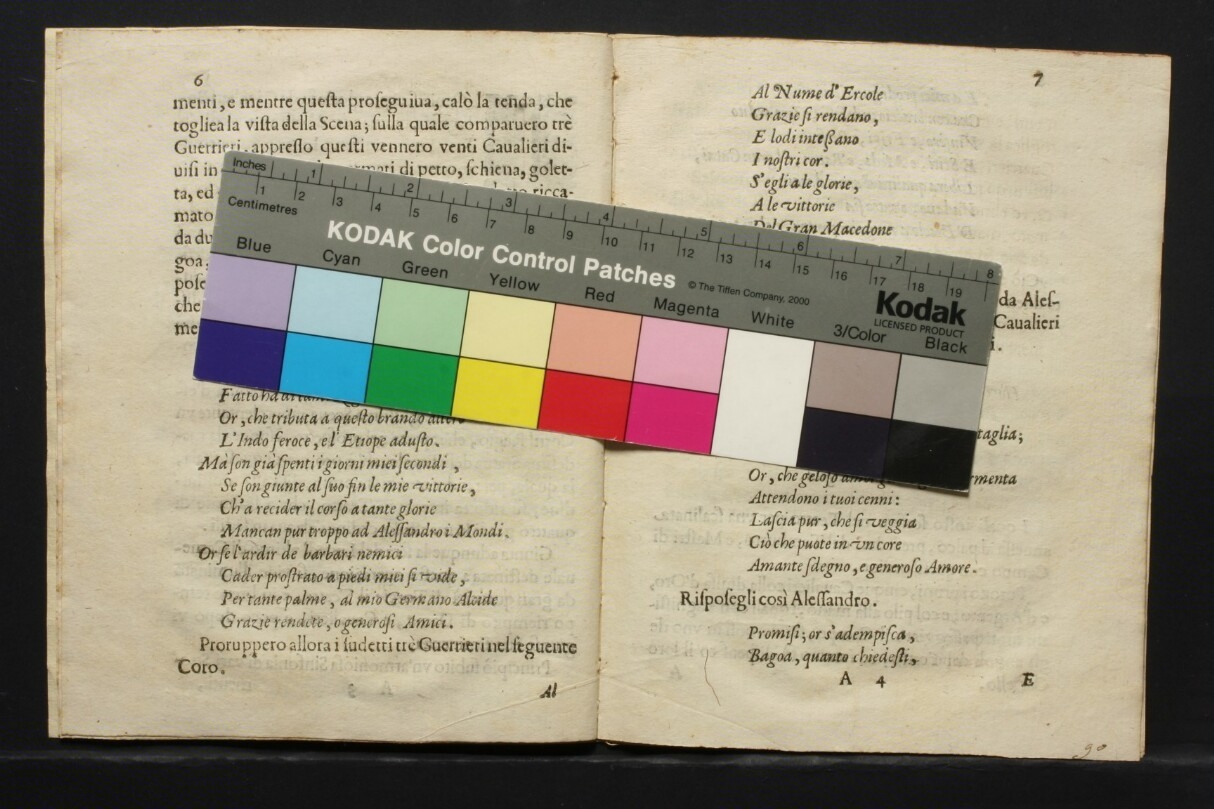 6
menti, e mentre questa proseguiua, calò la tenda, che
togliea la vista della Scena; sulla quale comparuero trè
Guerrieri, appresso questi vennero venti Caualieri di-
uisi in armati di petto, schiena, golet-
ta, ed ricca-
mato
da du
goa.
pose
che
me
Fatto hà
Or, che tributa a questo brando altero
L'Indo feroce, e l'Etiope adusto.
Mà son già spenti i giorni miei secondi,
Se son giunte al suo fin le mie vittorie,
Ch'a recider il corso a tante glorie
Mancan pur troppo ad Alessandro i Mondi.
Or se l'ardir de barbari nemici
Cader prostrato a piedi miei si vide,
Per tante palme, al mio Germano Alcide
Grazie rendete, o generosi Amici.
Proruppero allora i sudetti trè Guerrieri nel seguente
Coro.
Al
7
Al Nume d'Ercole
Grazie si rendano,
E lodi intessano
I nostri cor.
S'egli a le glorie,
A le vittorie
Del Gran Macedone
da Ales-
Caualieri
i.
taglia;
Or, che geloso rmenta
Attendono i tuoi cenni:
Lascia pur, che si veggia
Ciò che puote in vn core
Amante sdegno, e generoso Amore.
Risposegli così Alessandro.
Promisi; or s'adempisca,
Bagoa, quanto chiedesti,
A 4 E
90
Inches 1 2 3 4 5 6 7 8
Centimetres 1 2 3 4 5 6 7 8 9 10 11 12 13 14 15 16 17 18 19
KODAK Color Control Patches © The Tiffen Company, 2000
Kodak
LICENSED PRODUCT
Blue Cyan Green Yellow Red Magenta White 3/Color Black